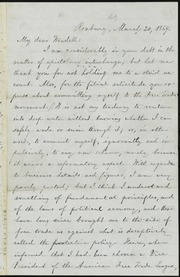 Roxbury, March 20, 1869.
My dear Wendell:
I am considerably in your debt in the
matter of epistolary interchange, but let me
thank you for not holding me to a strict ac-
count. Also, for the filial solicitude you ex-
press about committing myself to the Free Trade
movement. It is not my tendency to venture
into deep water without knowing whether I can
safely wade or swim through it; or, in other
words, I commit myself, ignorantly and ab-
solutely, to say nothing, however
it assumes a reformatory aspect. With regard to
business details and figures, I am very
poorly posted; but I think I understand and
something of fundamental principles, and
of the laws of political economy, and these
have long since brought me to the side of
free trade as against what is deceptively
called the protective policy. Having been
informed that I had been chosen a Vice
President of the American Free Trade League,